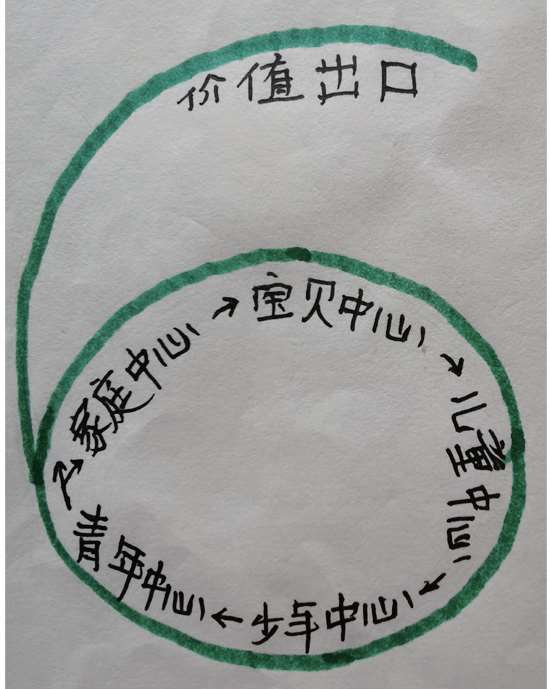 价值出口
宝贝中心
儿童中心
少年中心
青年中心
家庭中心